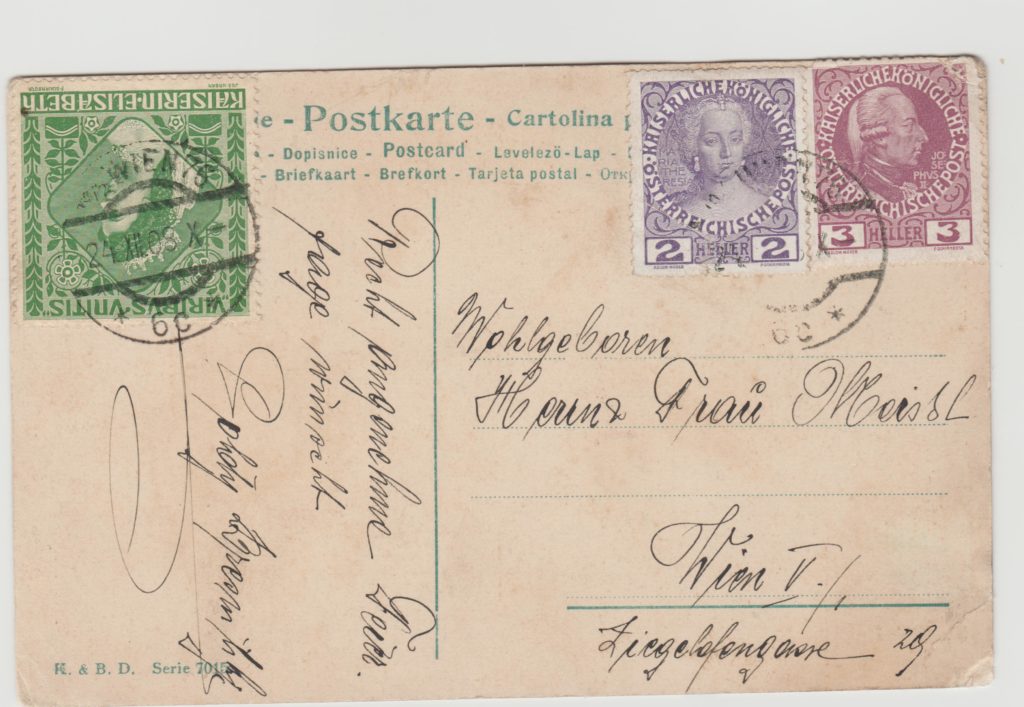 - Postkarte - Cartolina
- Dopisnice - Postcard - Levelező-Lap -
Briefkaart - Brefkort - Tarjeta postal -
KAISERIN·ELISABETH
VIRIBVS VNITIS
WIEN
24.XII.09
KAISERLICHE KÖNIGLICHE ÖSTERREICHISCHE POST
MARIA THERESIA
2 HELLER 2
KAISERLICHE KÖNIGLICHE ÖSTERREICHISCHE POST
JOSEPHVS II
3 HELLER 3
Recht angenehme Feier
tage wünscht
Wohlgeboren
Frau
Wien V./
Ziegelofengasse 29
K. & B. D. Serie